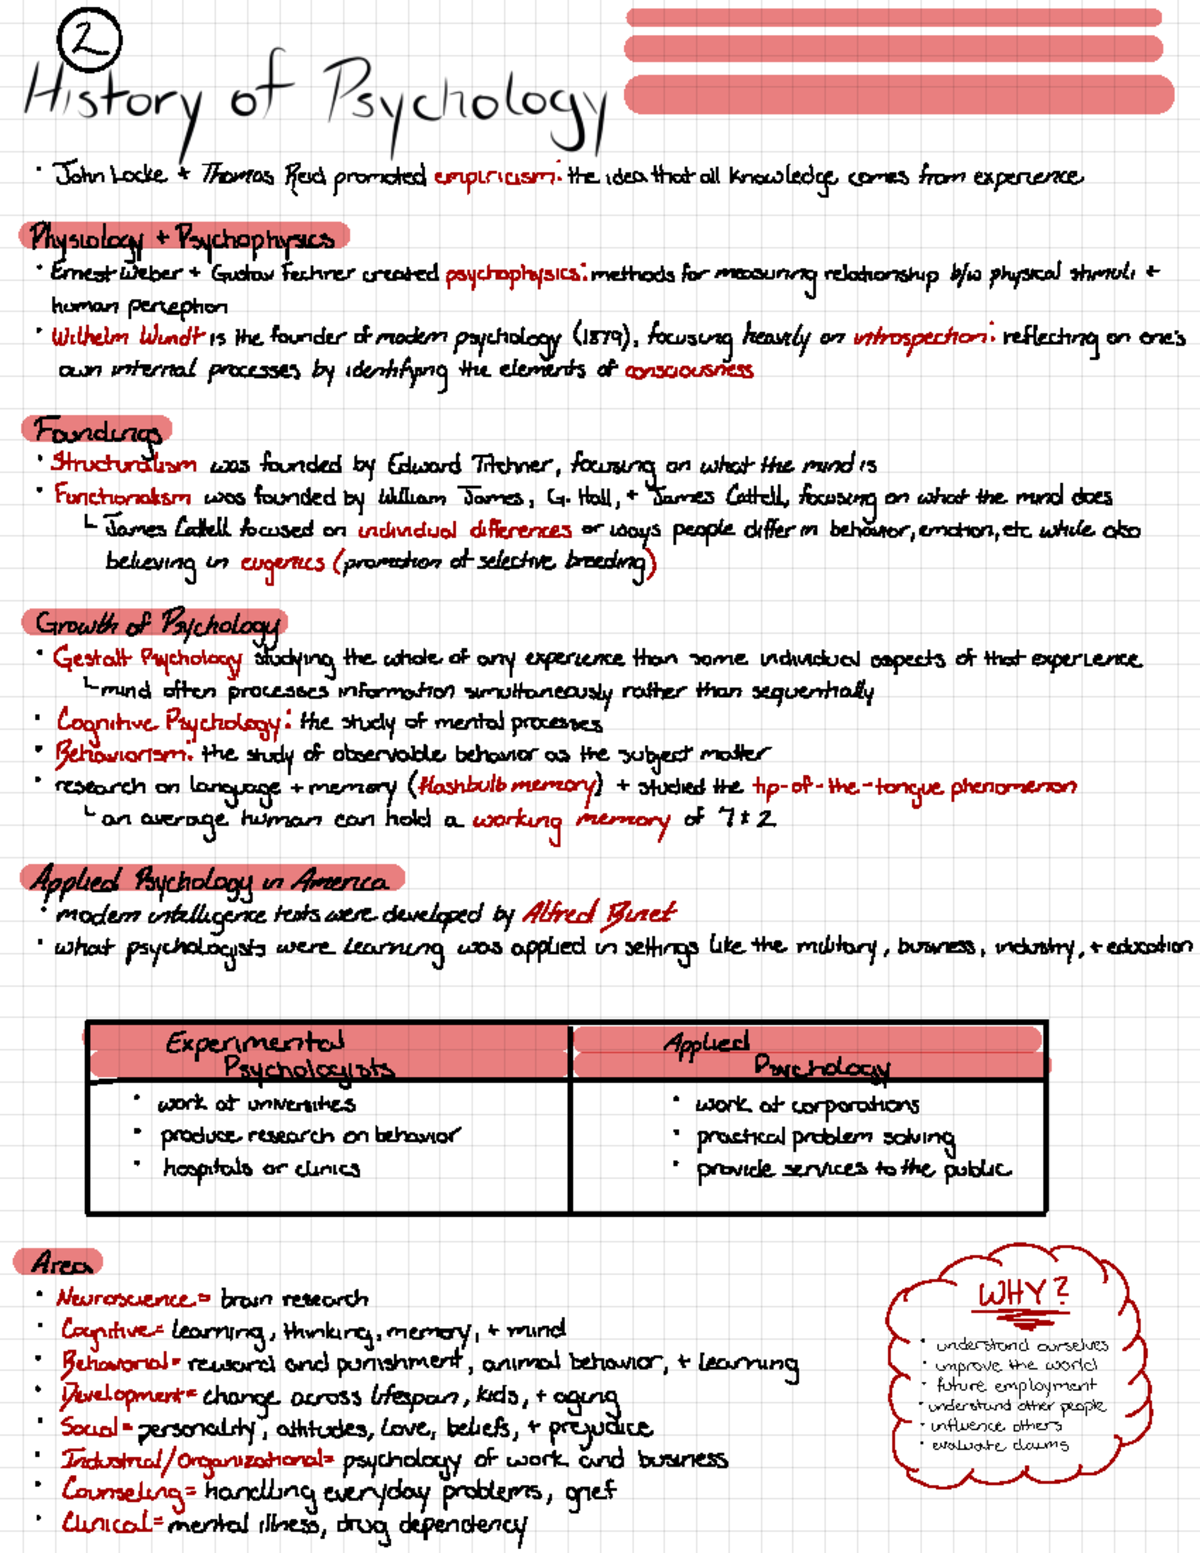 2
History of Psychology
• John Locke + Thomas Reid promoted empiricism: the idea that all knowledge comes from experience
Physiology + Psychophysics
• Ernest Weber + Gustav Fechner created psychophysics: methods for measuring relationship b/w physical stimuli +
human perception
• Wilhelm Wundt is the founder of modern psychology (1879), focusing heavily on introspection: reflecting on one's
own internal processes by identifying the elements of consciousness
Foundings
• Structuralism was founded by Edward Titchner, focusing on what the mind is
• Functionalism was founded by William James, G. Hall, + James Cattell, focusing on what the mind does
└ James Cattell focused on individual differences or ways people differ in behavior, emotion, etc while also
believing in eugenics (promotion of selective breeding)
Growth of Psychology
• Gestalt Psychology studying the whole of any experience than some individual aspects of that experience
└ mind often processes information simultaneously rather than sequentially
• Cognitive Psychology: the study of mental processes
• Behaviorism: the study of observable behavior as the subject matter
• research on language + memory (flashbulb memory) + studied the tip-of-the-tongue phenomenon
└ an average human can hold a working memory of 7 ± 2
Applied Psychology in America
• modern intelligence tests were developed by Alfred Binet
• what psychologists were learning was applied in settings like the military, business, industry, + education
Experimental
Psychologists
• work at universities
• produce research on behavior
• hospitals or clinics
Applied
Psychology
• work at corporations
• practical problem solving
• provide services to the public
Area
• Neuroscience = brain research
• Cognitive = learning, thinking, memory, + mind
• Behavorial = reward and punishment, animal behavior, + learning
• Development = change across lifespan, kids, + aging
• Social = personality, attitudes, love, beliefs, + prejudice
• Industrial/Organizational = psychology of work and business
• Counseling = handling everyday problems, grief
• Clinical = mental illness, drug dependency
WHY?
• understand ourselves
• improve the world
• future employment
• understand other people
• influence others
• evaluate claims